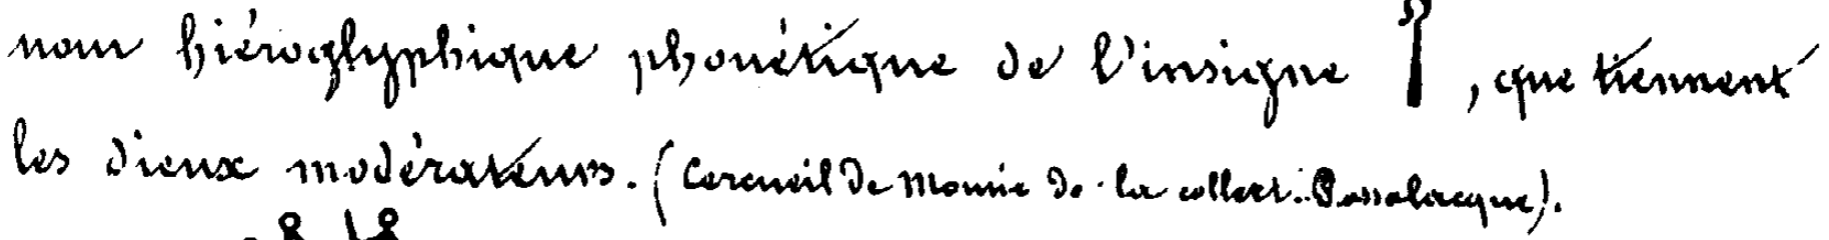 nom hiéroglyphique phonétique de l'insigne , que tiennent
les dieux modérateurs. (Cercueil de Momie de la collect. Passalacque).